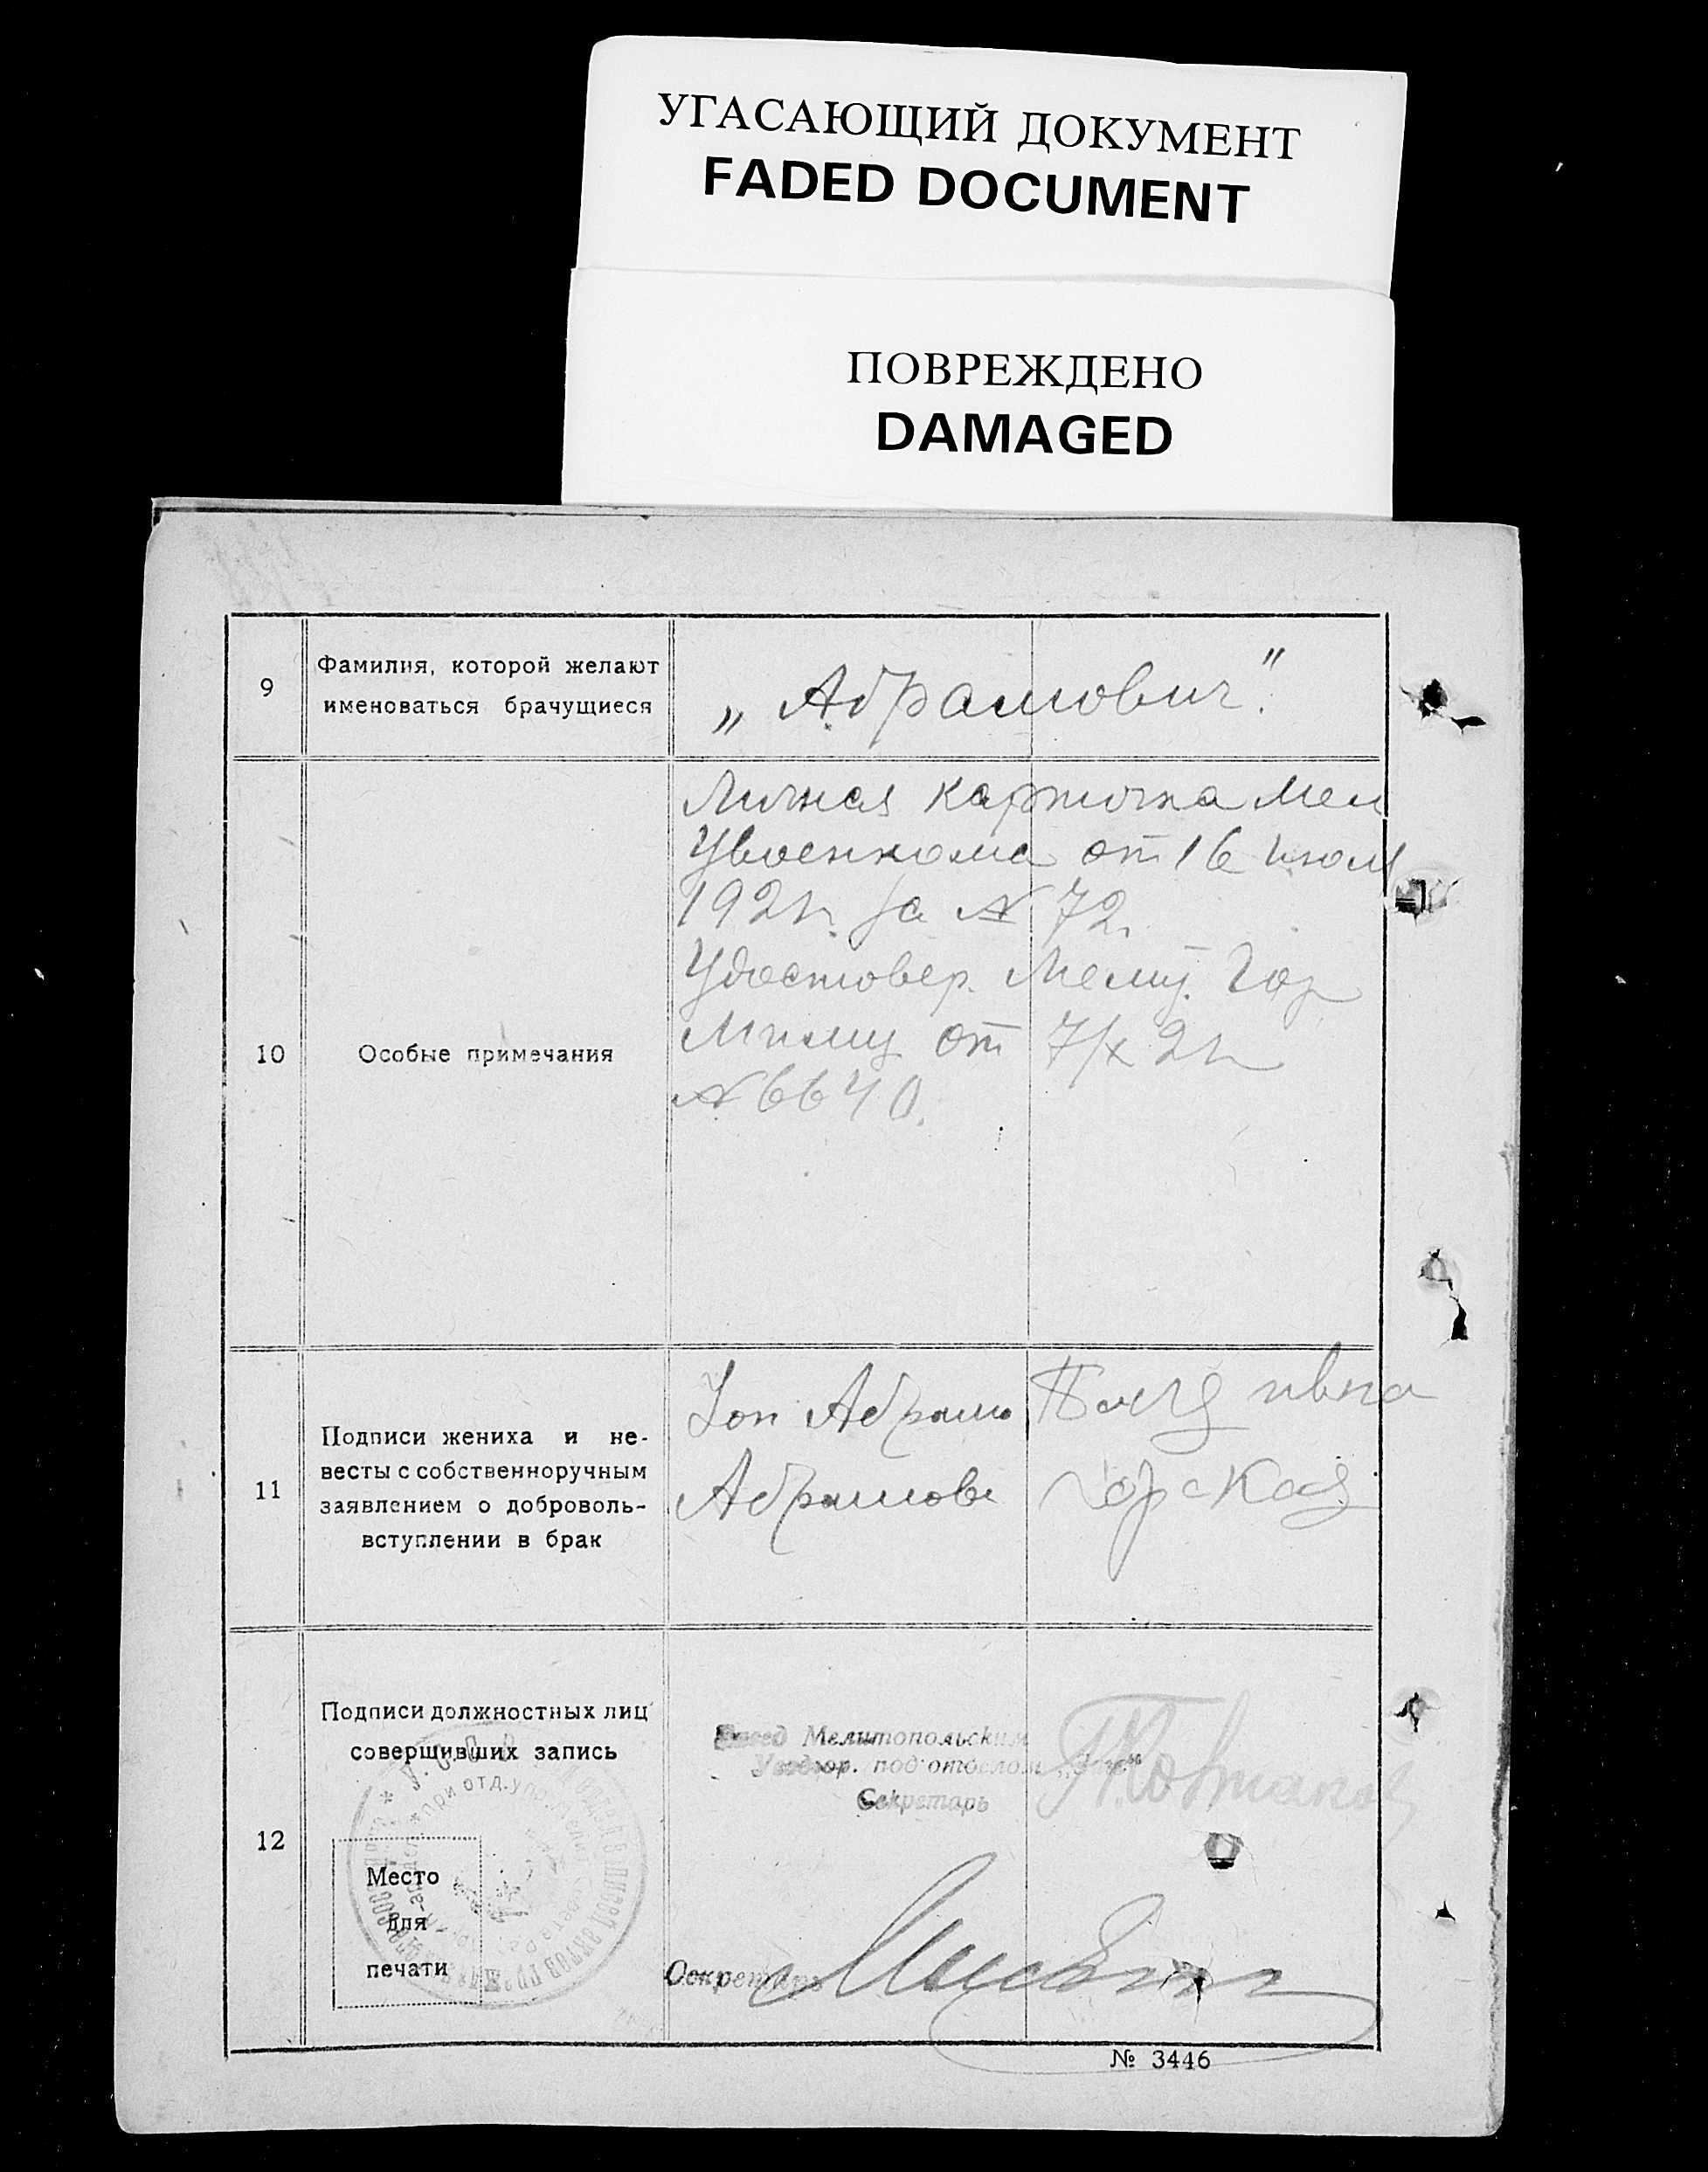 УГАСАЮЩИЙ ДОКУМЕНТ
FADED DOCUMENT
ПОВРЕЖДЕНО
DAMAGED
9
Фамилия, которой желают
именоваться брачущиеся
„Абрамович."
10
Особые примечания
Личная карточка Мел
Увоенкома от 16 июля
1921г. за № 72.
Удостовер. Мелит. Гор
от 7/X 21г
№ 6640.
11
Подписи жениха и не-
весты с собственноручным
заявлением о доброволь-
вступлении в брак
Абрамо
Абрамов
Горская
12
Подписи должностных лиц
совершивших запись
Место
для
печати
Мелитопольским
под'отделом
Секретарь
Секретарь
№ 3446